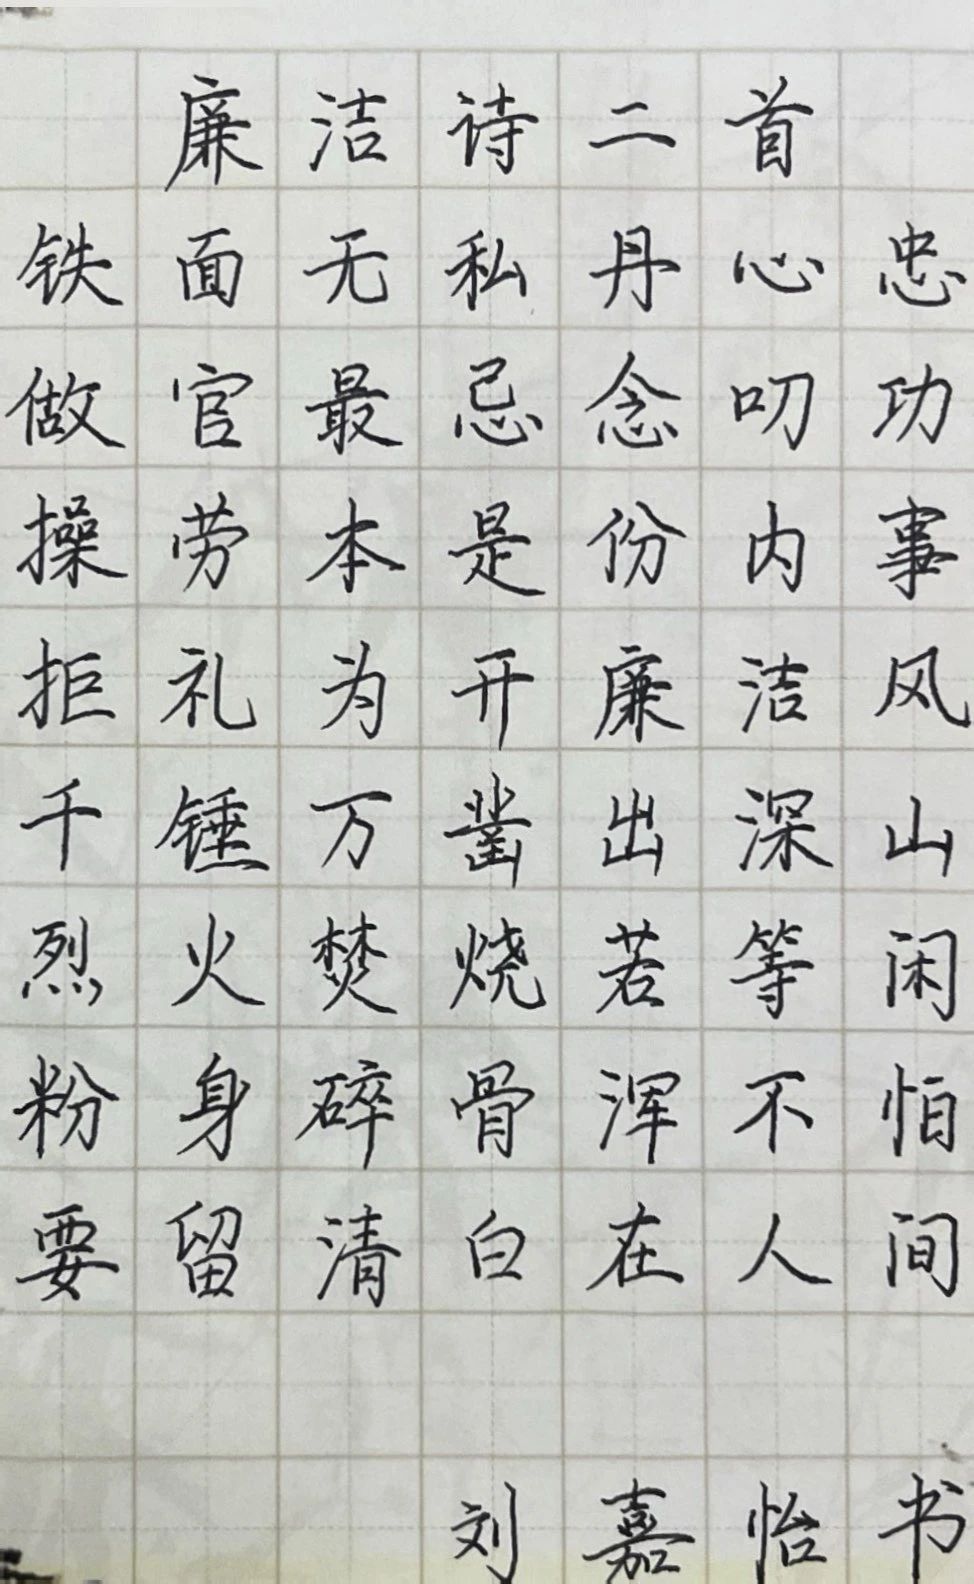 廉洁诗二首
铁面无私丹心忠
做官最忌念叨功
操劳本是份内事
拒礼为开廉洁风
千锤万凿出深山
烈火焚烧若等闲
粉身碎骨浑不怕
要留清白在人间
刘嘉怡书